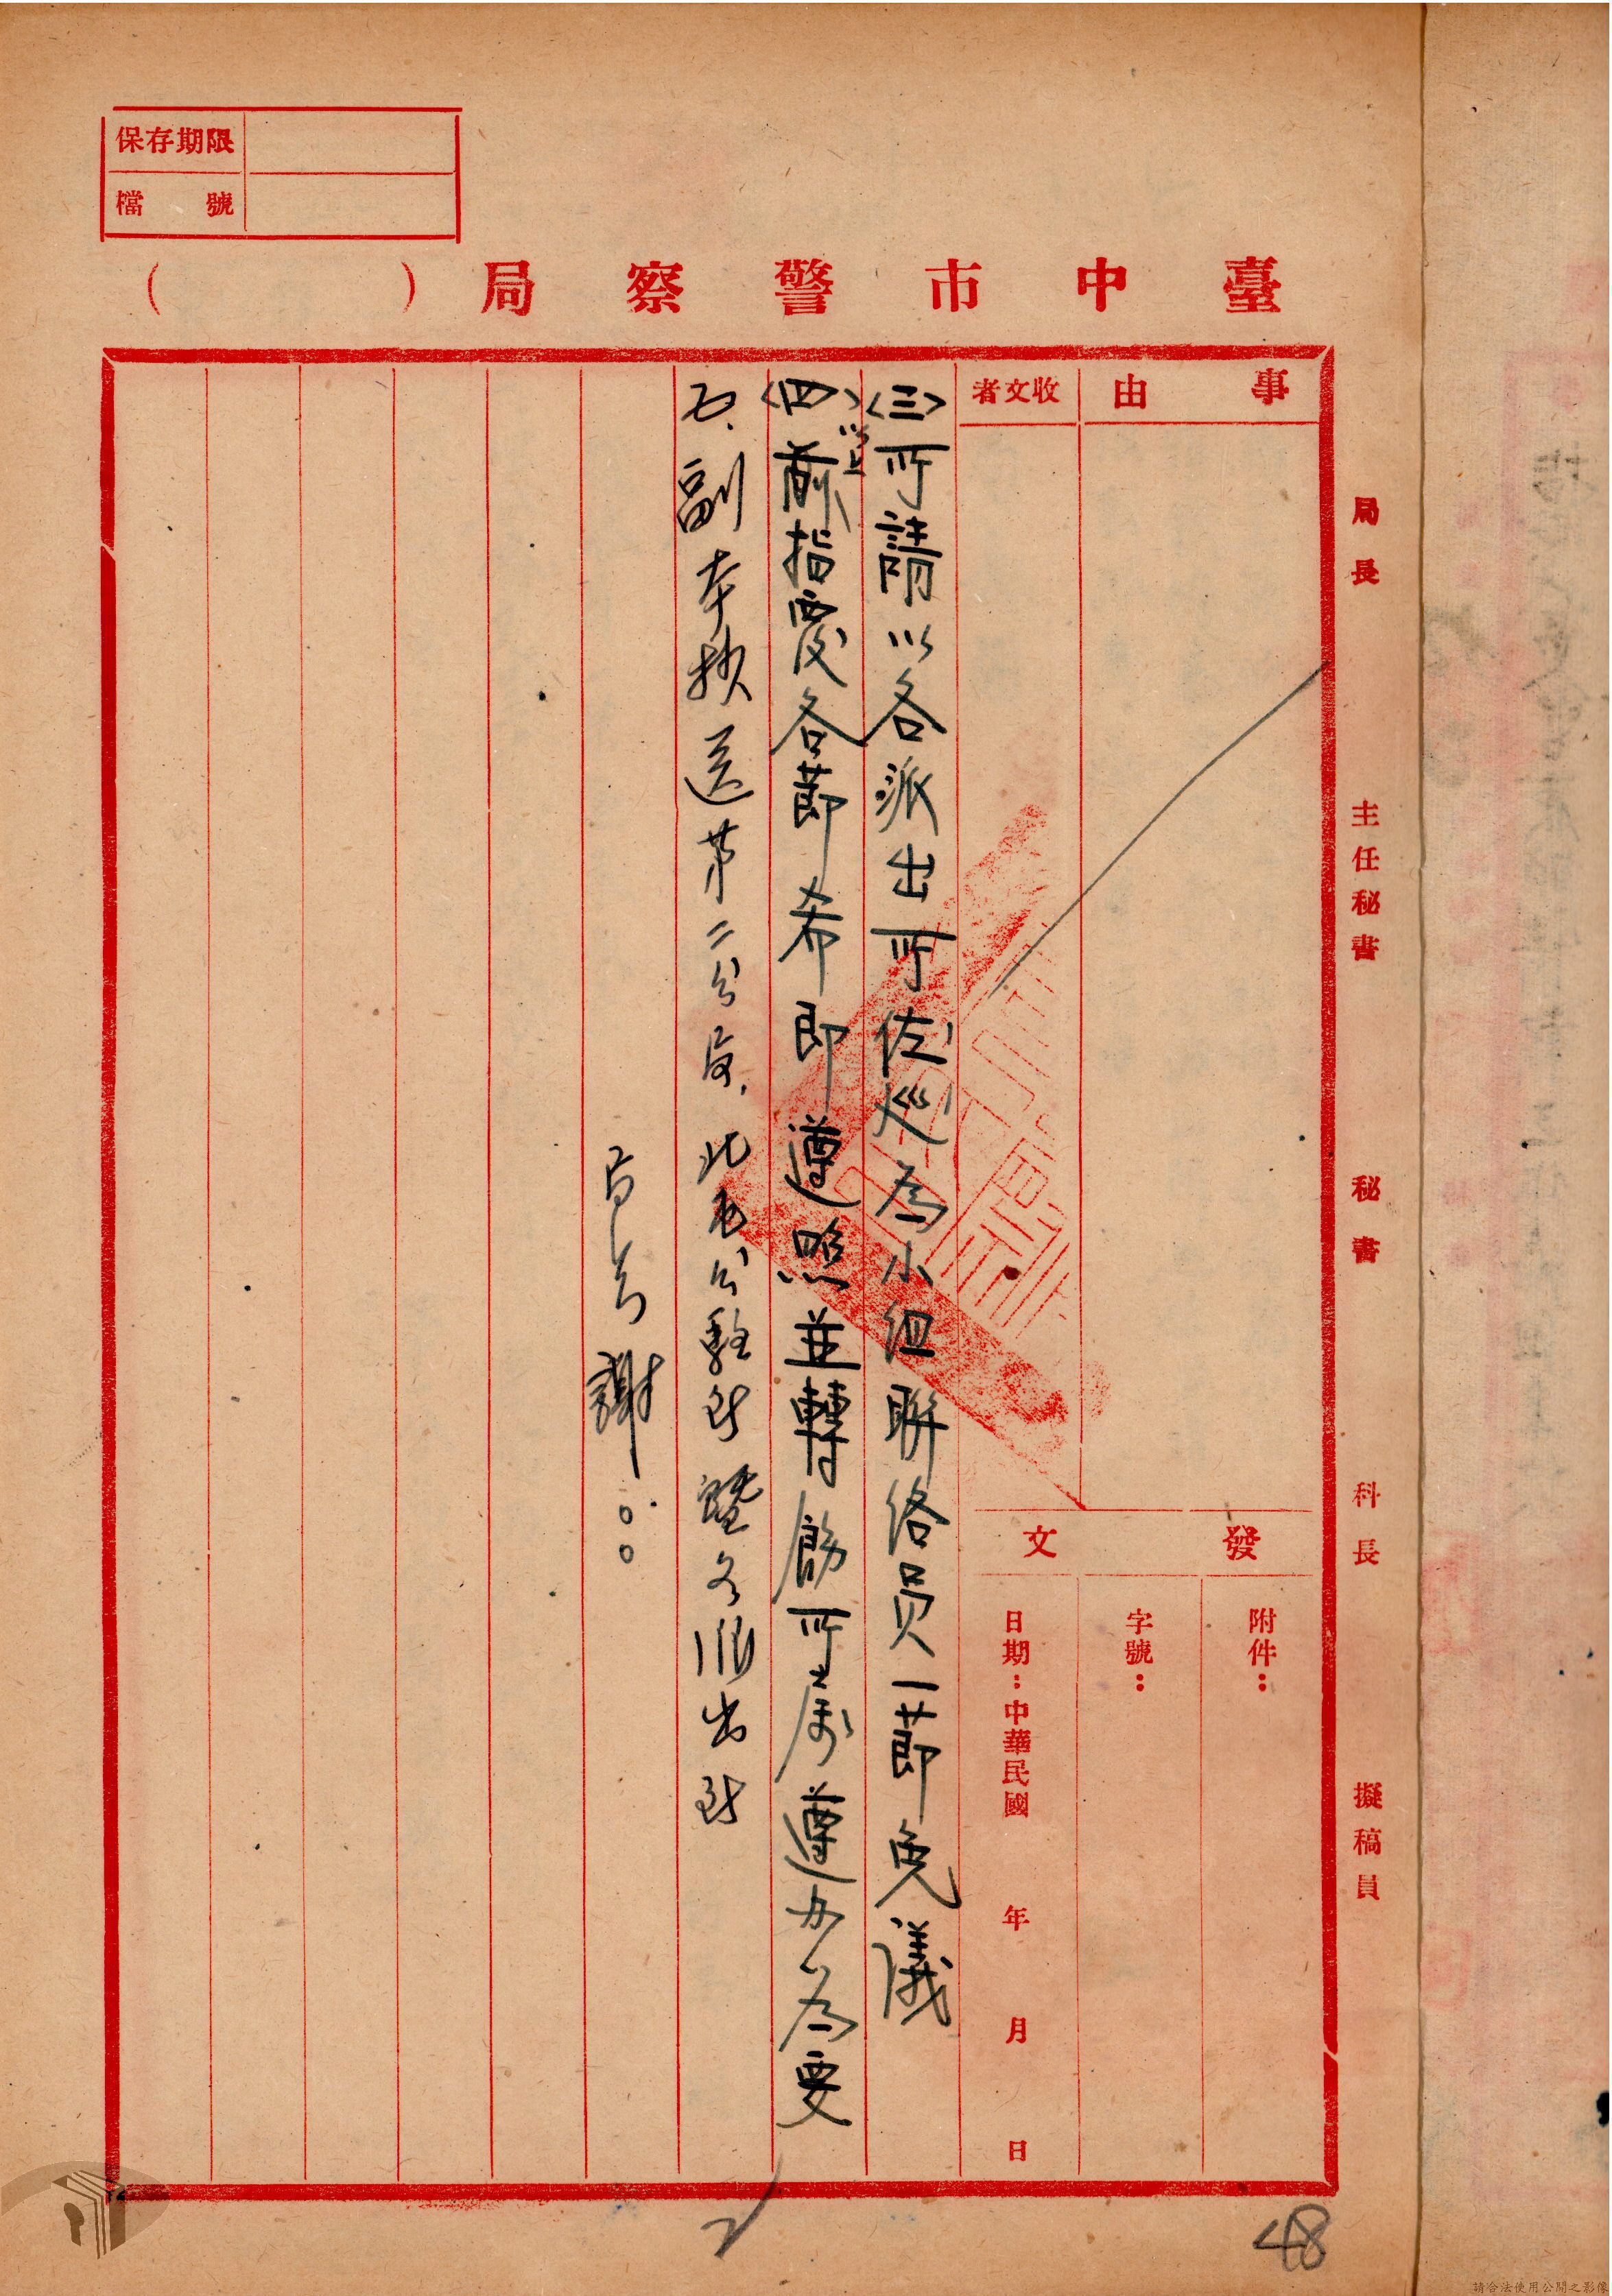 保存期限
檔號
臺中市警察局（　　）
事由
收文者
發文
附件：
字號：
日期：中華民國　年　月　日
〈三〉所請以各派出所佐巡為小組聯絡員一節免議
〈四〉以上前指覆各節希即遵照並轉飭所屬遵办為要
五、副本抄送第二分局，北屯分駐所暨各派出所
局長謝○○
局長
主任秘書
秘書
科長
擬稿員
48
請合法使用公開之影像